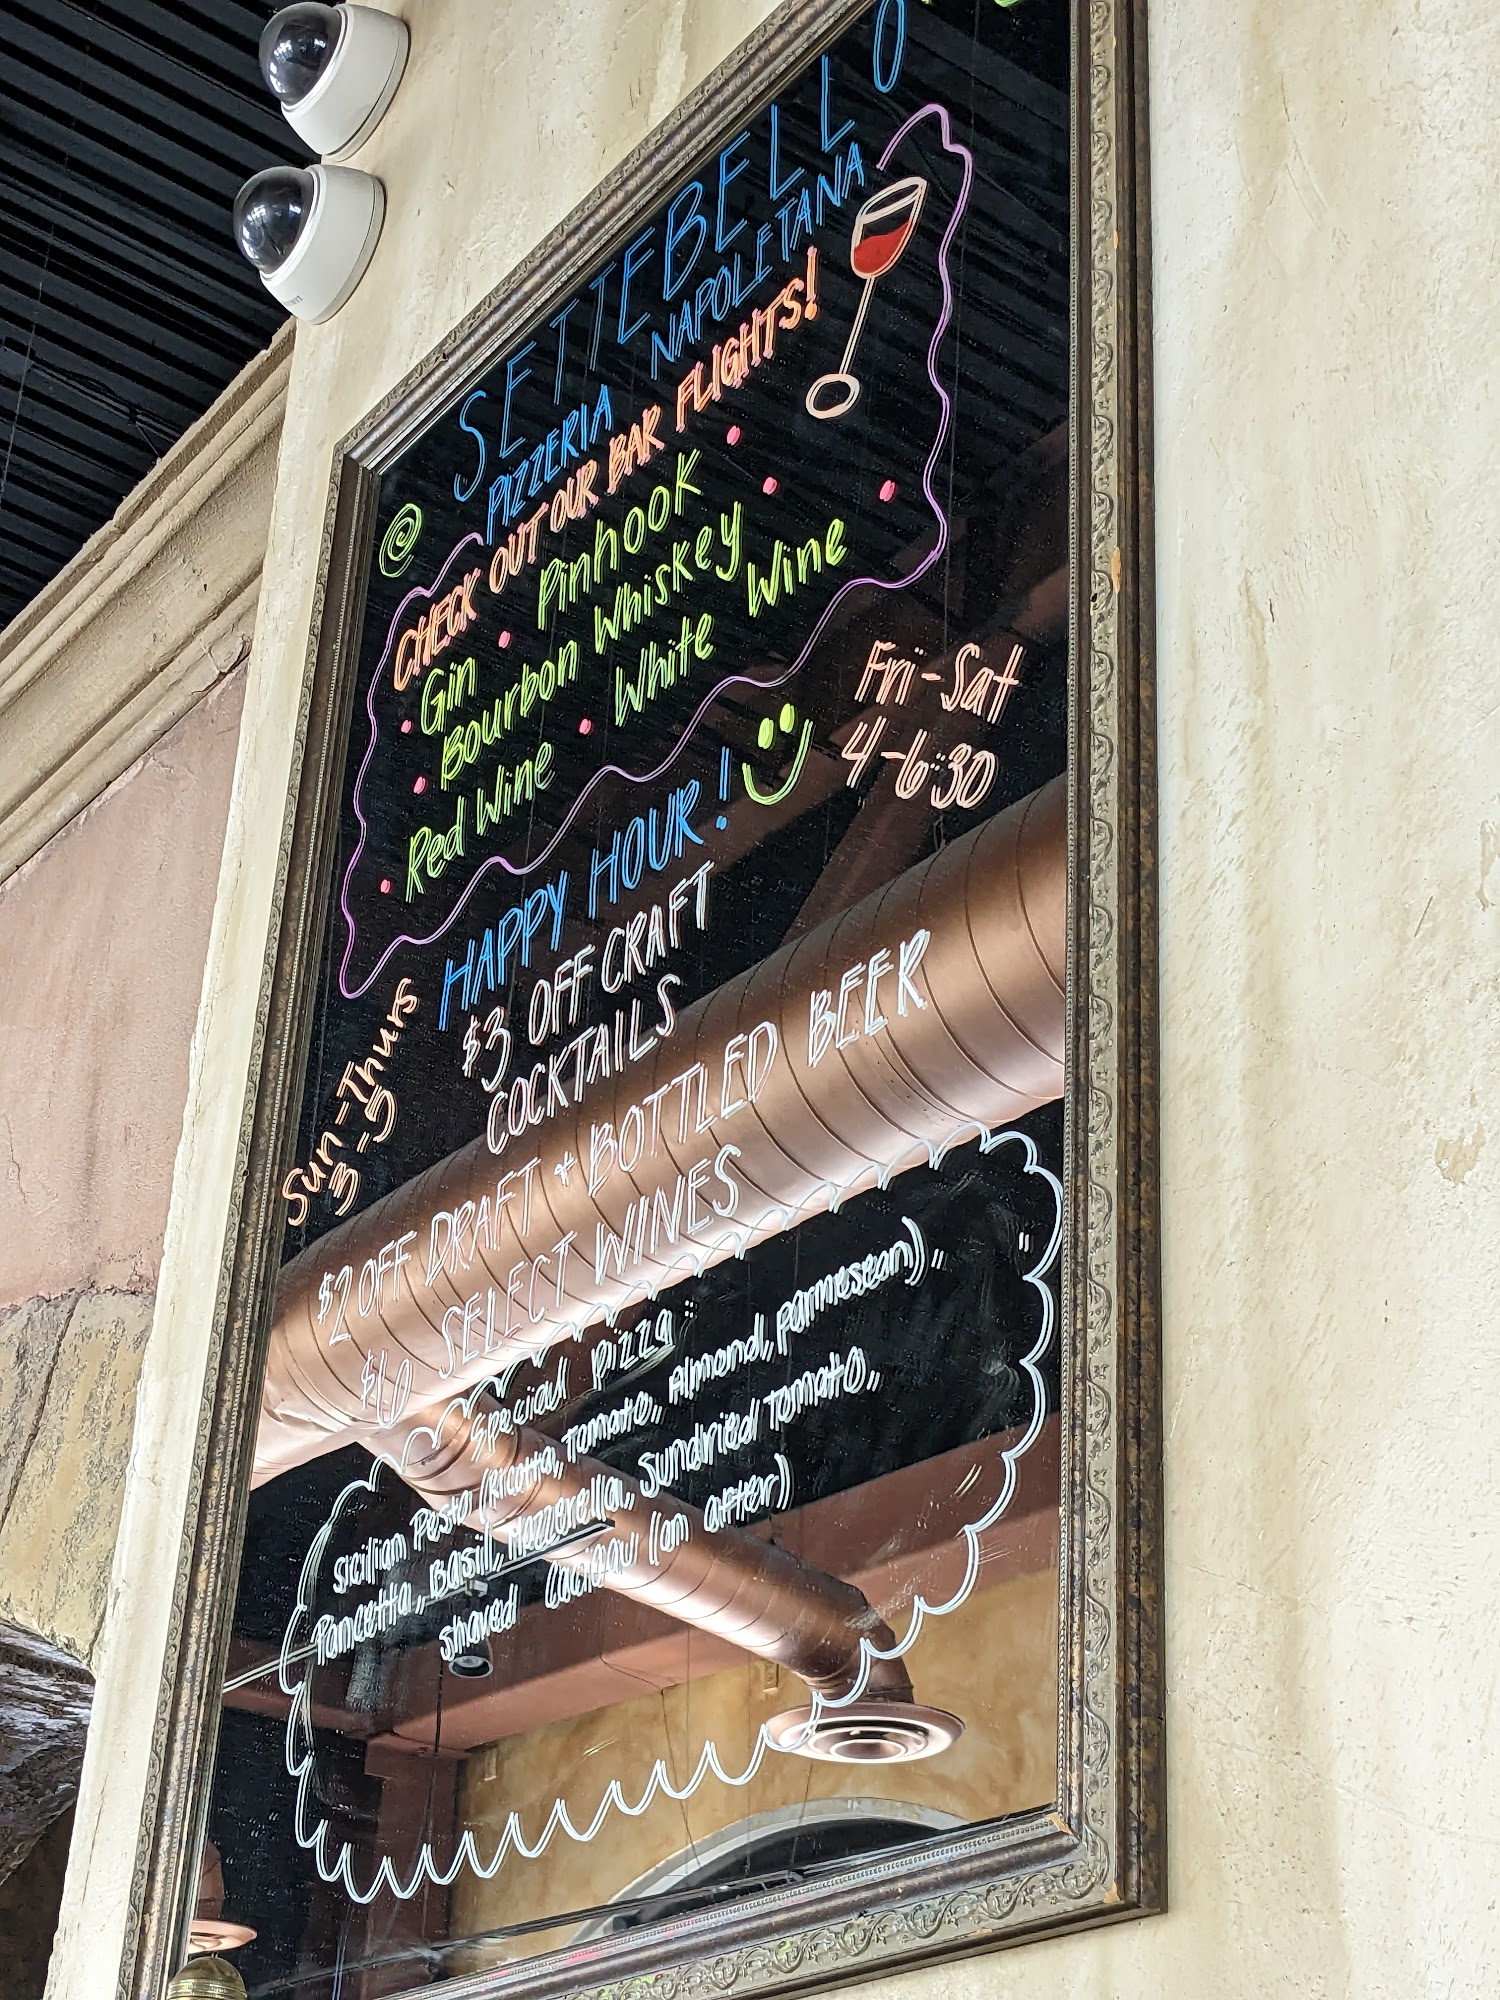 SETTEBELLO
PIZZERIA NAPOLETANA
CHECK OUT OUR BAR FLIGHTS!
Gin • Pinhook
• Bourbon Whiskey •
• Red Wine • White Wine •
HAPPY HOUR!
Fri-Sat
4-6:30
Sun-Thurs
3-5
$3 OFF CRAFT
COCKTAILS
$2 OFF DRAFT + BOTTLED BEER
$10 SELECT WINES
Special pizza:
Sicilian Pesto (Ricotta, Tomato, Almond, parmesean),
Pancetta, Basil, Mozzerella, Sundried Tomato,
shaved (on after)